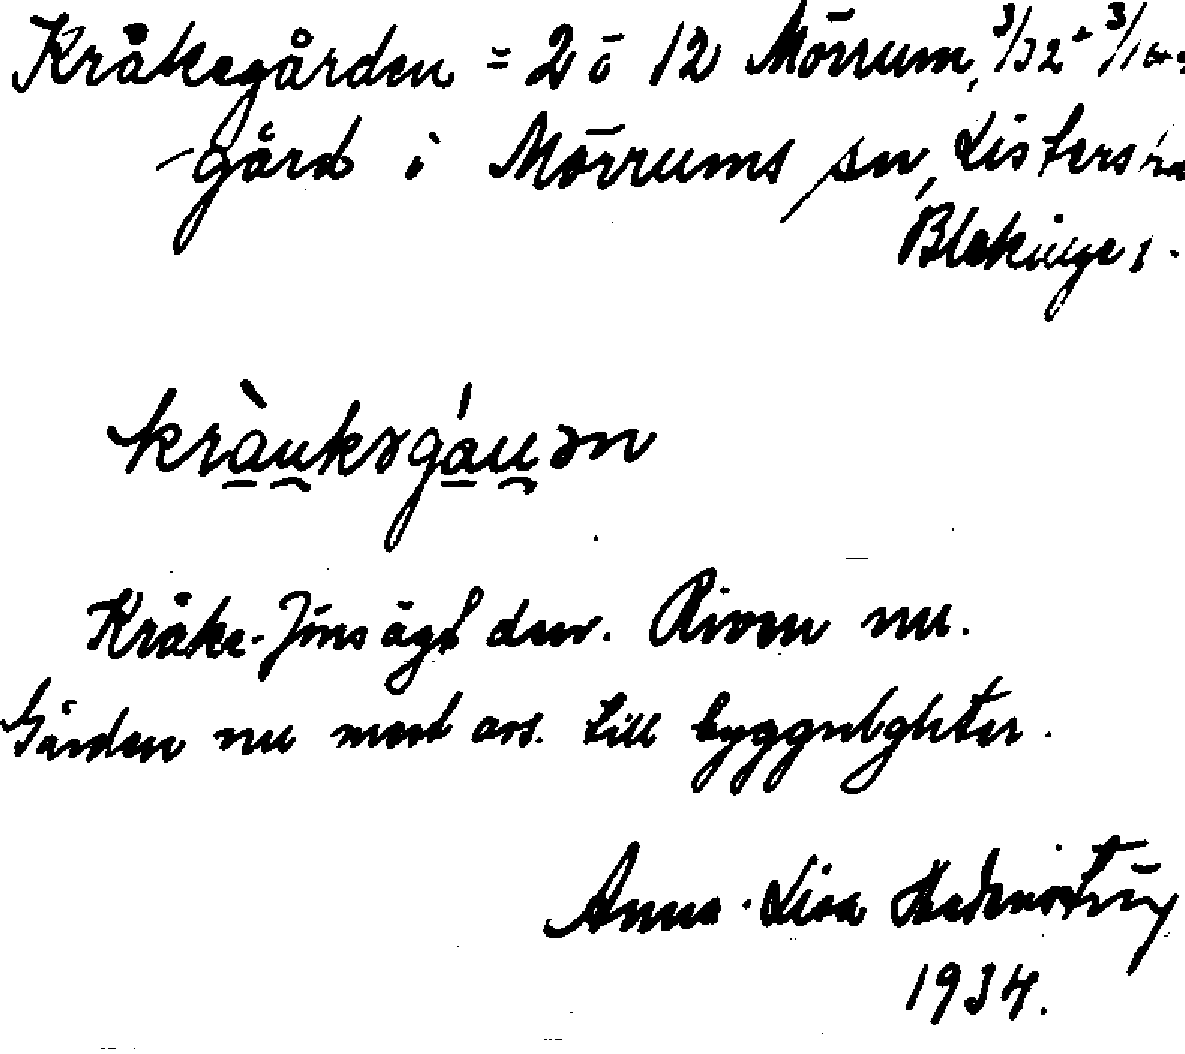 Kråkegården = 2 ö 12 Mörrum, 3/32 + 3/16
gård i Mörrums sn, Listers hd
Blekinge l.
kràukəgáuən
Kråke-Jöns ägt den. Riven nu.
Gården nu med avs. till byggnader.
Anna-Lisa
1934.